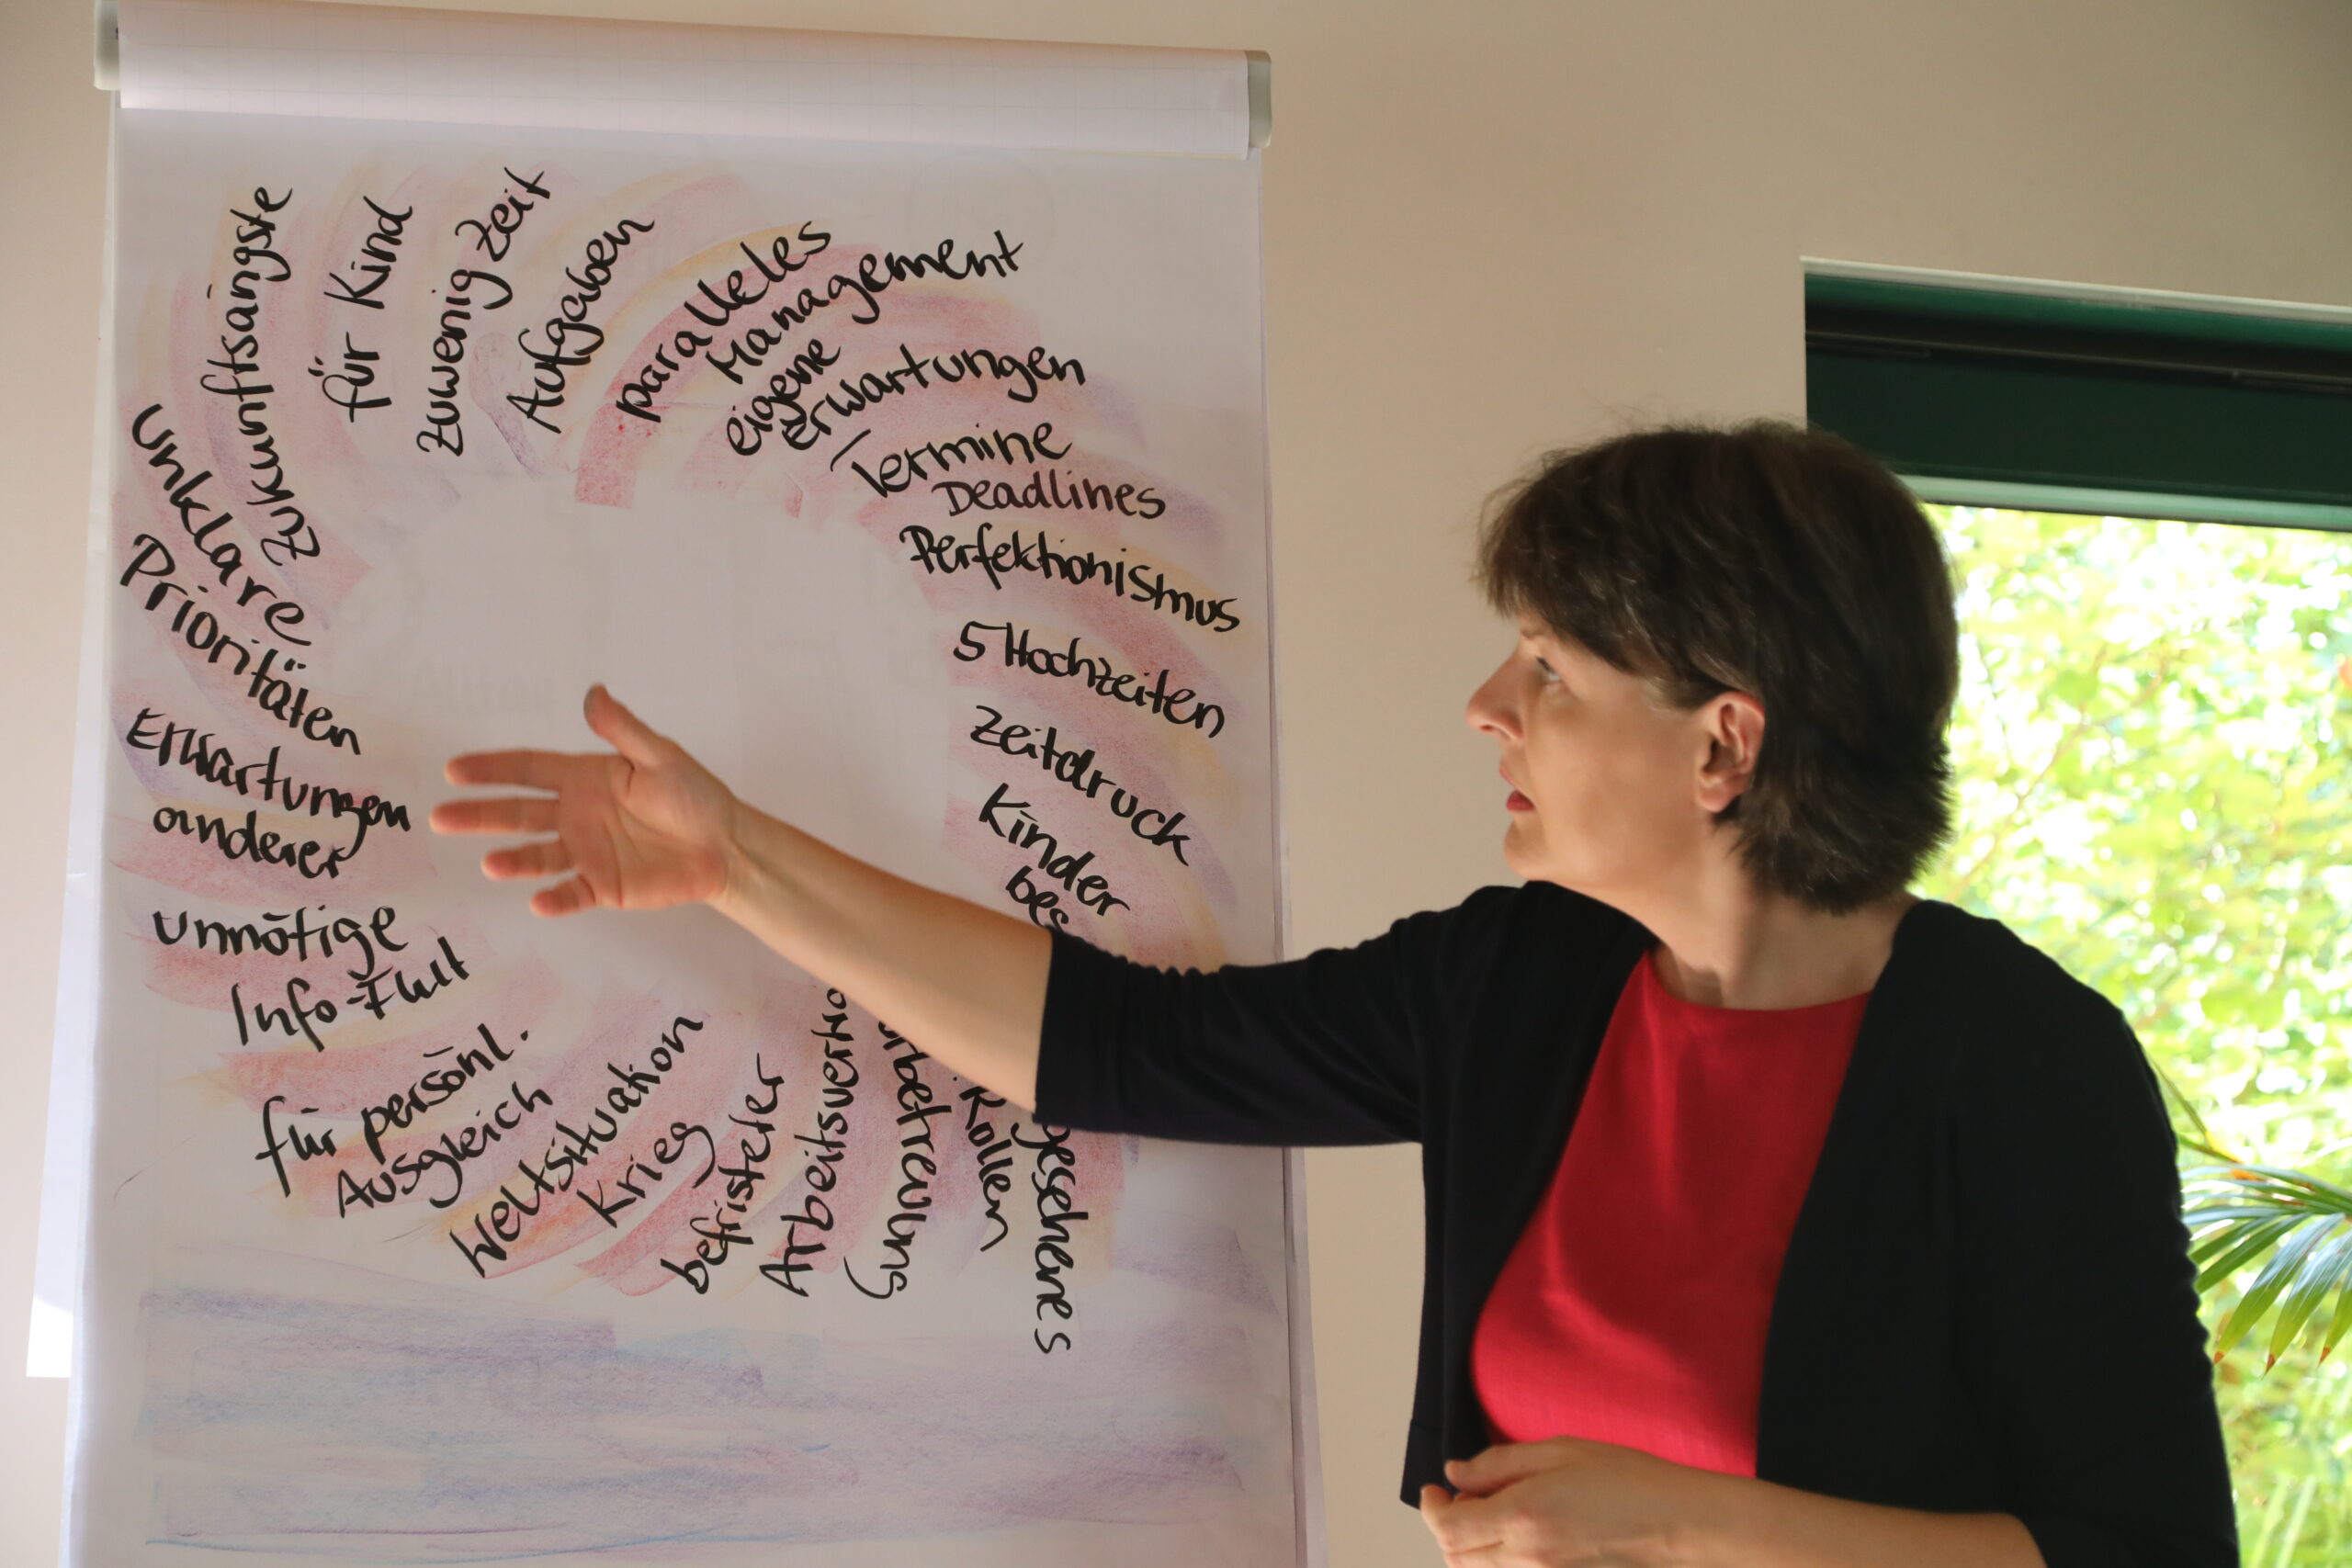 Zukunftsängste
für Kind
zuwenig Zeit
Aufgaben
paralleles
Management
eigene
Erwartungen
Termine
Deadlines
Perfektionismus
5 Hochzeiten
Zeitdruck
Kinder
bes
gesehenes
Rollen
befristeter
Krieg
Weltsituation
für persönl.
Ausgleich
unnötige
Info-Flut
Erwartungen
anderer
unklare
Prioritäten